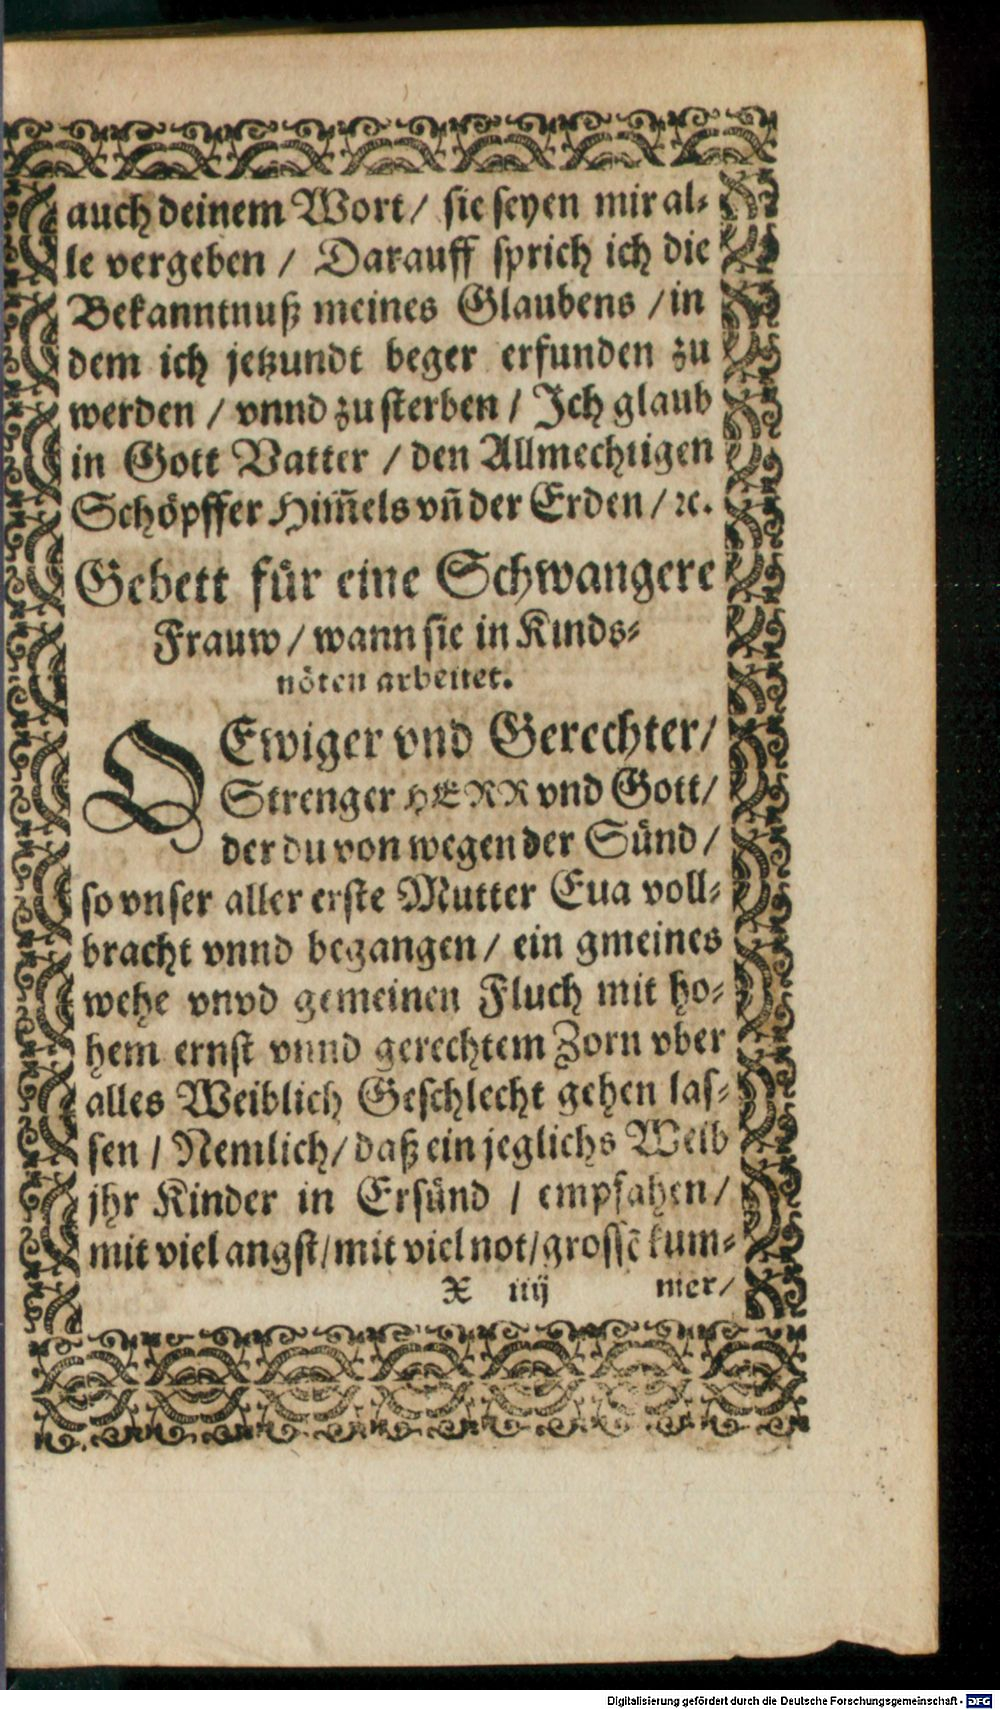 auch deinem Wort / sie seyen mir al⸗
le vergeben / Darauff sprich ich die
Bekanntnuß meines Glaubens / in
dem ich jetzundt beger erfunden zu
werden / vnnd zu sterben / Jch glaub
in Gott Vatter / den Allmechtigen
Schöpffer Him̃els vñ der Erden / ꝛc.
Gebett für eine Schwangere
Frauw / wann sie in Kinds⸗
nöten arbeitet.
O Ewiger vnd Gerechter /
Strenger HERR vnd Gott /
der du von wegen der Sünd /
so vnser aller erste Mutter Eua voll⸗
bracht vnnd begangen / ein gmeines
wehe vnvd gemeinen Fluch mit ho⸗
hem ernst vnnd gerechtem Zorn vber
alles Weiblich Geschlecht gehen las⸗
sen / Nemlich / daß ein jeglichs Weib
jhr Kinder in Ersünd / empfahen /
mit viel angst / mit viel not / grossẽ kum⸗
X iiij mer /
Digitalisierung gefördert durch die Deutsche Forschungsgemeinschaft - DFG